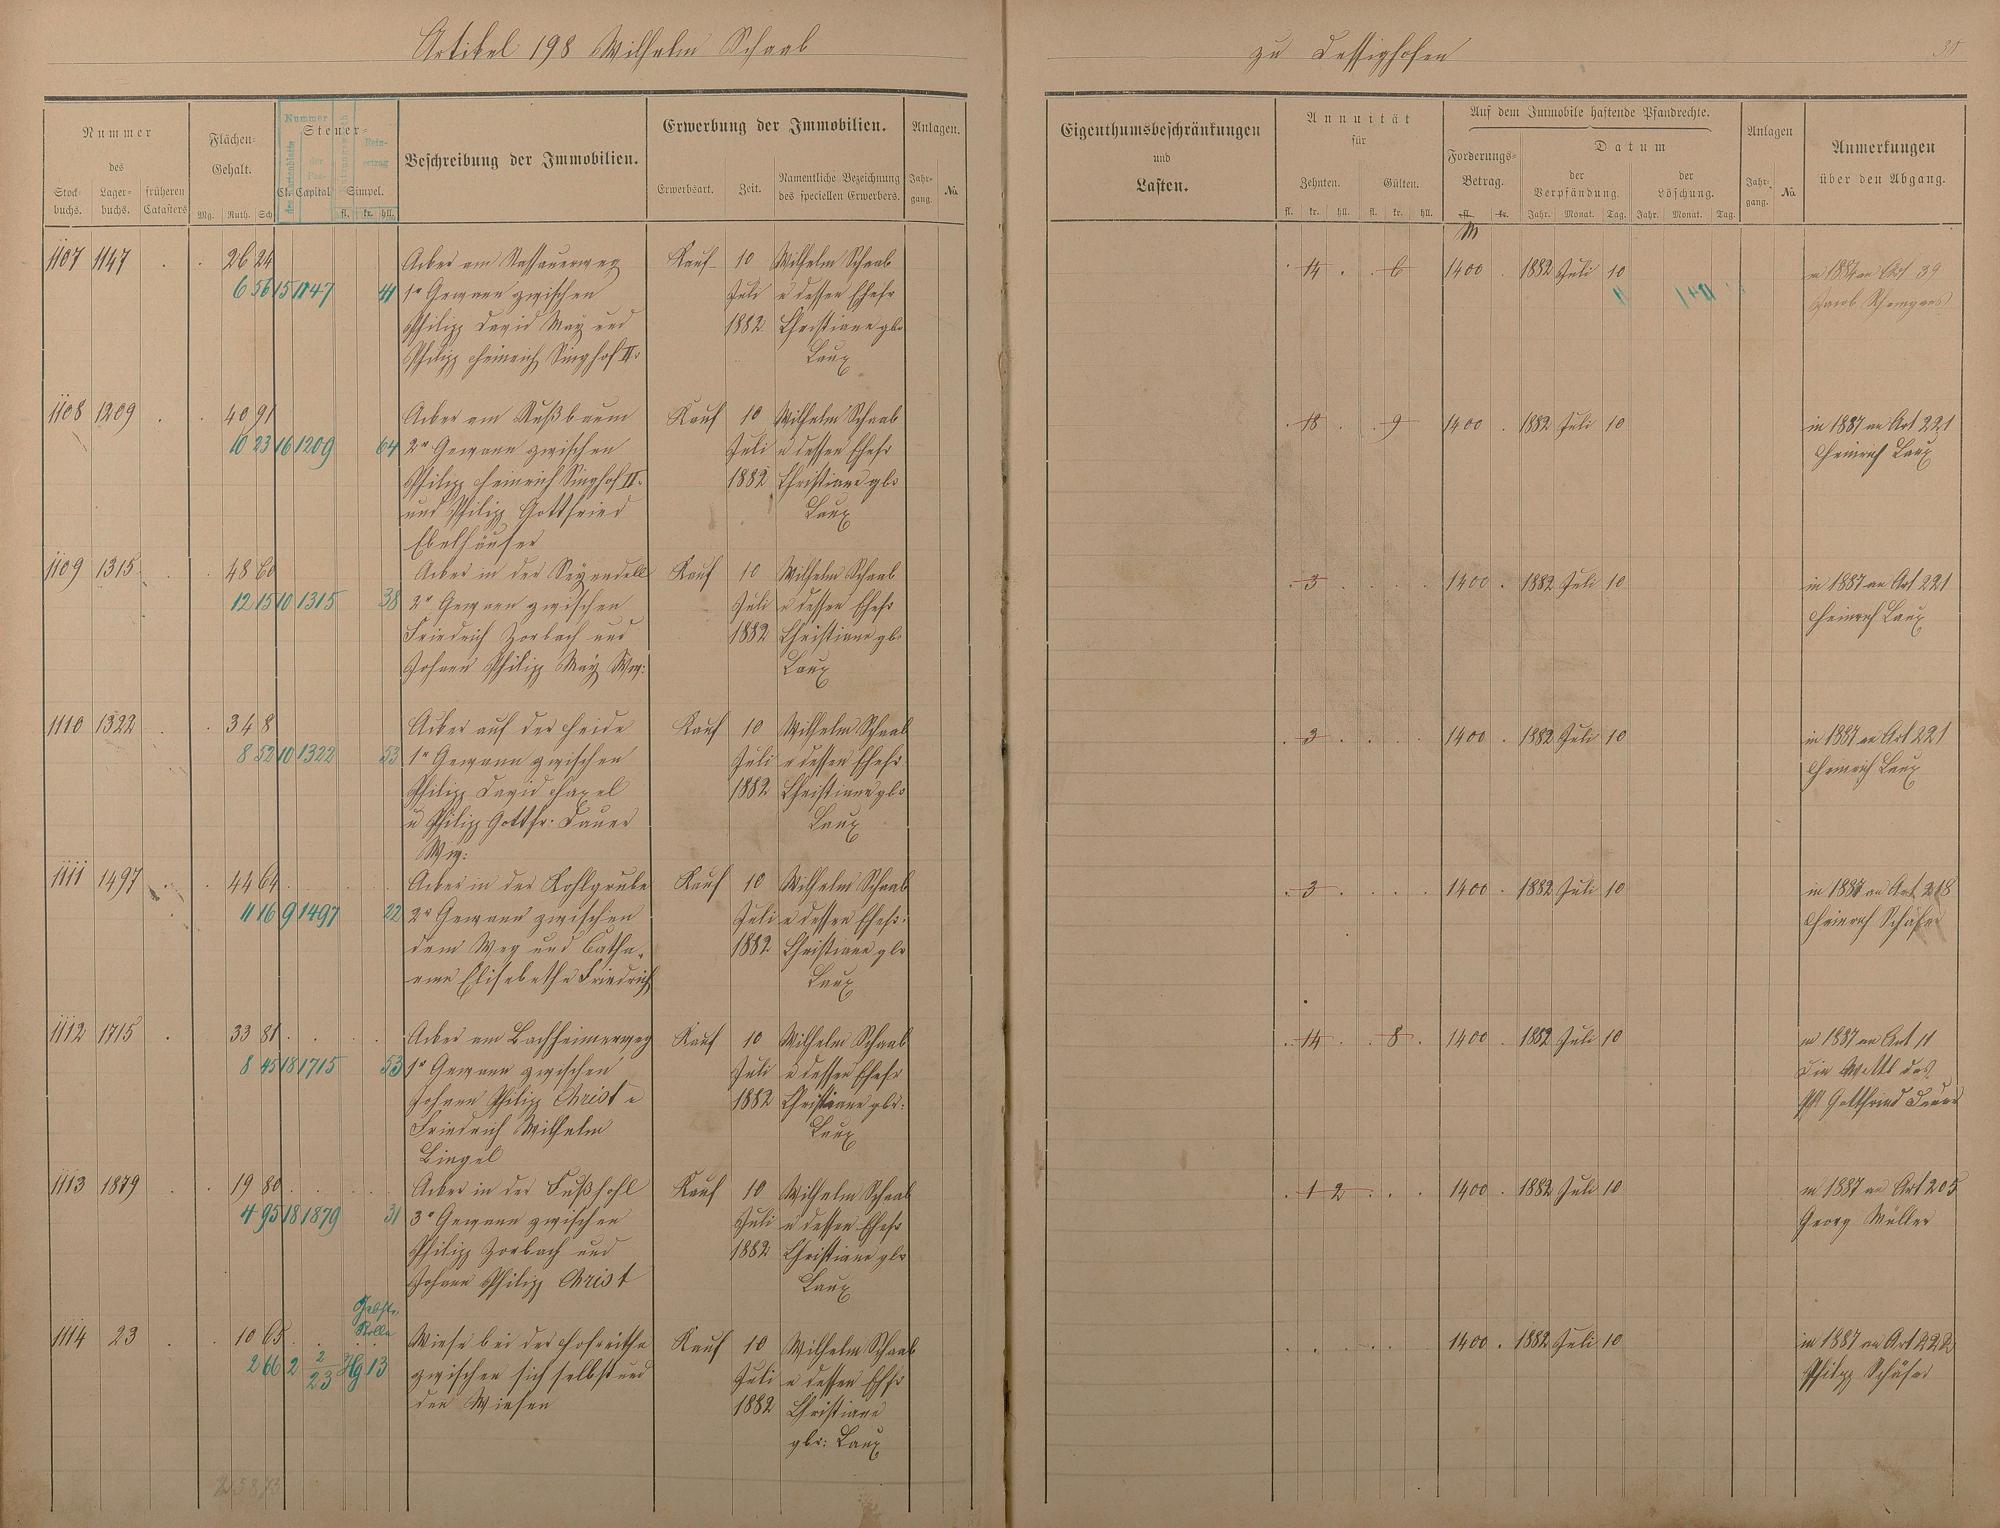 Artikel 198 Wilhelm Schaab
zu Dessighofen
Nummer
des
Stock-
buchs.
Lager-
buchs.
früheren
Catasters
Flächen-
Gehalt.
Mg. Ruth. Sch.
Nummer
Steuer-
Cl. Capital.
Simpel.
fl. kr. hll.
Beschreibung der Immobilien.
Erwerbung der Immobilien.
Erwerbsart.
Zeit.
Namentliche Bezeichnung
des speciellen Erwerbers.
Anlagen.
Jahr-
gang.
No.
Eigenthumsbeschränkungen
und
Lasten.
Annuität
für
Zehnten. Gülten.
fl. kr. hll. fl. kr. hll.
Auf dem Immobile haftende Pfandrechte.
Forderungs-
Betrag.
fl. kr.
M
Datum
der
Verpfändung.
Jahr. Monat. Tag.
der
Löschung.
Jahr. Monat. Tag.
Anlagen
Jahr-
gang.
No.
Anmerkungen
über den Abgang.
1107 1147 26 24 Acker am Nassauerweg Kauf 10 Wilhelm Schaab 14 6 1400 1882 Juli 10
6 56 15 1147 41 1r Gewann zwischen Juli u dessen Ehefr
Philipp David May und 1882 Christiane gbr
Philipp Heinrich Singhof II. Laux
1108 1209 40 91 Acker am Nußbaum Kauf 10 Wilhelm Schaab 18 9 1400 1882 Juli 10 in 1887 an Art 221
10 23 16 1209 64 2r Gewann zwischen Juli u dessen Ehefr Heinrich Laux
Philipp Heinrich Singhof II. 1882 Christiane gbr
und Philipp Gottfried Laux
Ebelhäuser
1109 1315 48 60 Acker in der Kauf 10 Wilhelm Schaab 3 1400 1882 Juli 10 in 1887 an Art 221
12 15 10 1315 38 2r Gewann zwischen Juli u dessen Ehefr Heinrich Laux
Friedrich Zorbach und 1882 Christiane gbr
Johann Philipp May Ww: Laux
1110 1322 34 8 Acker auf der Heide Kauf 10 Wilhelm Schaab 3 1400 1882 Juli 10 in 1887 an Art 221
8 52 10 1322 53 1r Gewann zwischen Juli u dessen Ehefr Heinrich Laux
Philipp David 1882 Christiane gbr
u Philipp Gottfr. Dauer Laux
Ww:
1111 1497 44 64 Acker in der Kohlgrube Kauf 10 Wilhelm Schaab 3 1400 1882 Juli 10 in 1887 an Art 218
11 16 9 1497 22 2r Gewann zwischen Juli u dessen Ehefr. Heinrich Schäfer
dem Weg und Catha-
1882 Christiane gbr
Elisabethe Friedrich Laux
1112 1715 33 81 Acker am Bachheimerweg Kauf 10 Wilhelm Schaab 14 8 1400 1882 Juli 10 in 1887 an Art 11
8 45 18 1715 53 1r Gewann zwischen Juli u dessen Ehefr Die des
Johann Philipp Christ u 1882 Christiane gbr: Gottfried Dauer
Friedrich Wilhelm Laux
Bingel
1113 1879 19 80 Acker in der Kauf 10 Wilhelm Schaab 1 2 1400 1882 Juli 10 in 1887 an Art 205
4 95 18 1879 31 3r Gewann zwischen Juli u dessen Ehefr Georg Müller
Philipp Zorbach und 1882 Christiane gbr
Johann Philipp Christ Laux
1114 23 10 65 Wiese bei der Hofreithe Kauf 10 Wilhelm Schaab 1400 1882 Juli 10 in 1887 an Art 222
2 66 2 2/23 Hg 13 zwischen sich selbst und Juli u dessen Ehfr Philipp Schäfer
den Wiesen 1882 Christiane
gbr: Laux